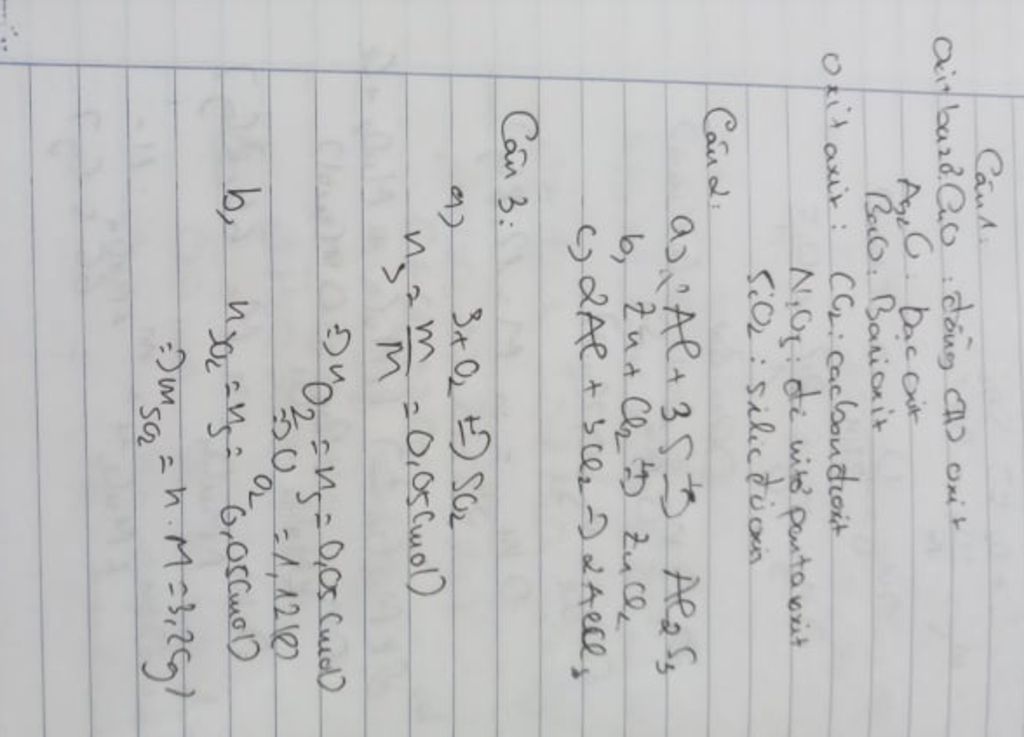 Câu 1:
oxit bazơ: CuO : đồng (II) oxit
Ag2O : bạc oxit
BaO : Bari oxit
oxit axit : CO2 : cacbon đioxit
N2O5 : đi nitơ pentaoxit
SiO2 : silic đioxit
Câu 2:
a, 2Al + 3S -> Al2S3
b, Zn + Cl2 -> ZnCl2
c, 2Al + 3Cl2 -> 2AlCl3
Câu 3:
a) S + O2 -> SO2
nS = m/M = 0,05 (mol)
=> nO2 = nS = 0,05 (mol)
=> VO2 = 1,12 (l)
b, nSO2 = nS = 0,05 (mol)
=> mSO2 = n.M = 3,2 (g)